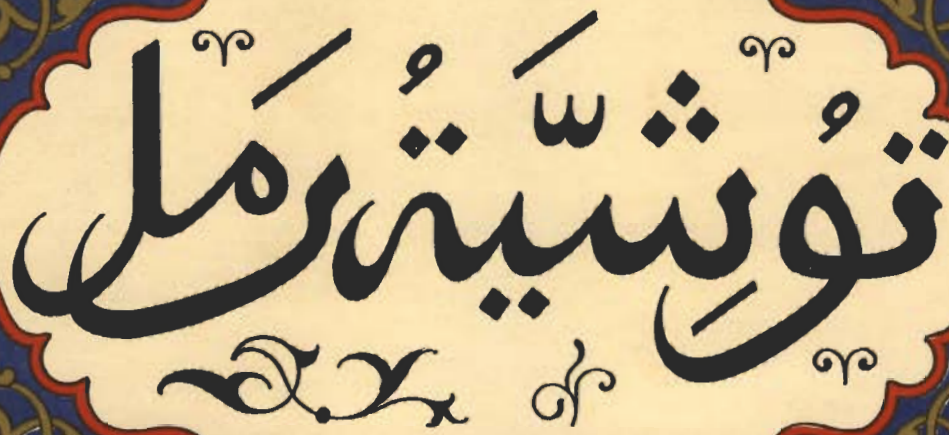 تُوشِيَّةُ رَمَل